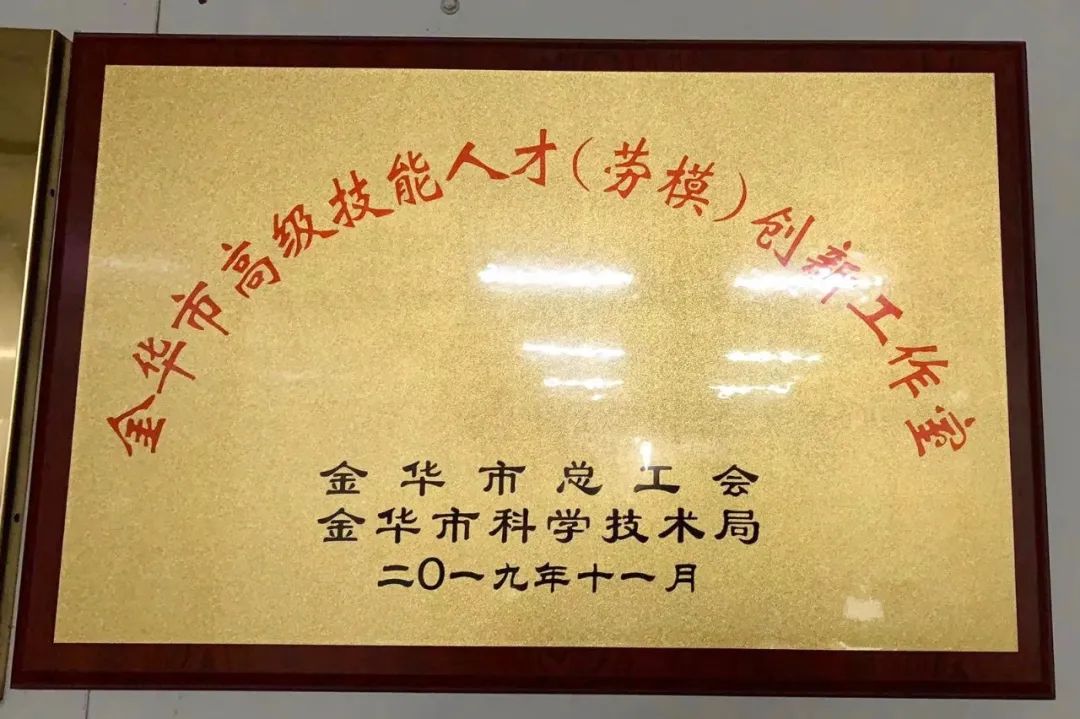 金华市高级技能人才(劳模)创新工作室
金华市总工会
金华市科学技术局
二〇一九年十一月